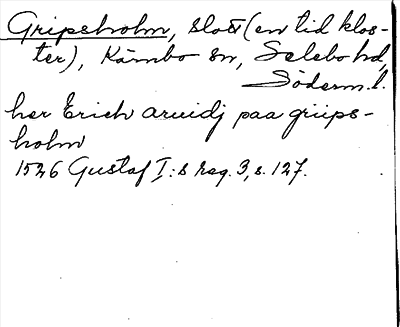 Gripsholm, slott (en tid klos-
ter), Kärnbo sn, Selebo hd,
Söderm. l.
her Erich aruidj paa griips-
holm
1526 Gustaf I:s reg. 3, s. 127.